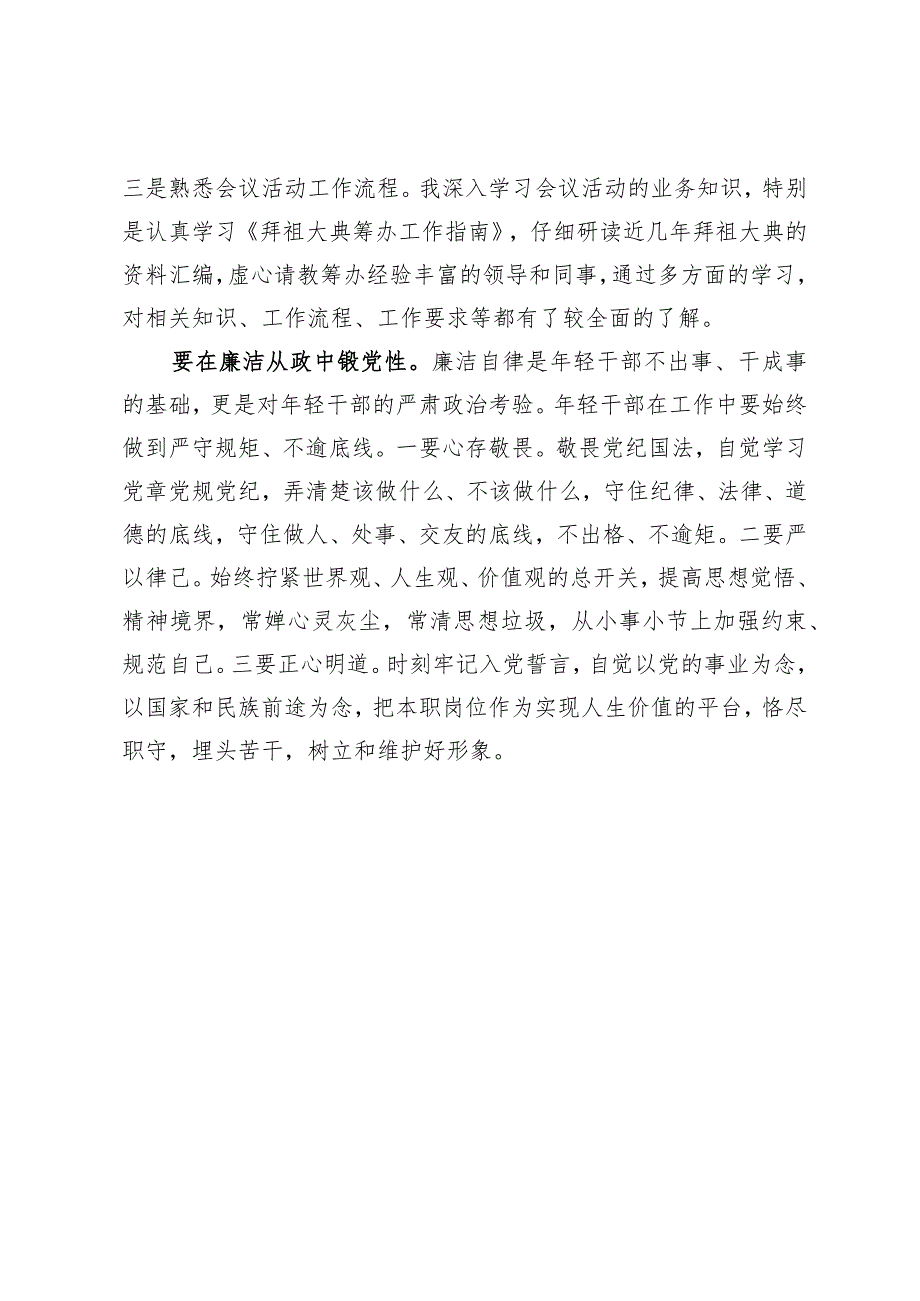 三是熟悉会议活动工作流程。我深入学习会议活动的业务知识，特别
是认真学习《拜祖大典筹办工作指南》，仔细研读近几年拜祖大典的
资料汇编，虚心请教筹办经验丰富的领导和同事，通过多方面的学习，
对相关知识、工作流程、工作要求等都有了较全面的了解。
要在廉洁从政中锻党性。廉洁自律是年轻干部不出事、干成事
的基础，更是对年轻干部的严肃政治考验。年轻干部在工作中要始终
做到严守规矩、不逾底线。一要心存敬畏。敬畏党纪国法，自觉学习
党章党规党纪，弄清楚该做什么、不该做什么，守住纪律、法律、道
德的底线，守住做人、处事、交友的底线，不出格、不逾矩。二要严
以律己。始终拧紧世界观、人生观、价值观的总开关，提高思想觉悟、
精神境界，常婵心灵灰尘，常清思想垃圾，从小事小节上加强约束、
规范自己。三要正心明道。时刻牢记入党誓言，自觉以党的事业为念，
以国家和民族前途为念，把本职岗位作为实现人生价值的平台，恪尽
职守，埋头苦干，树立和维护好形象。